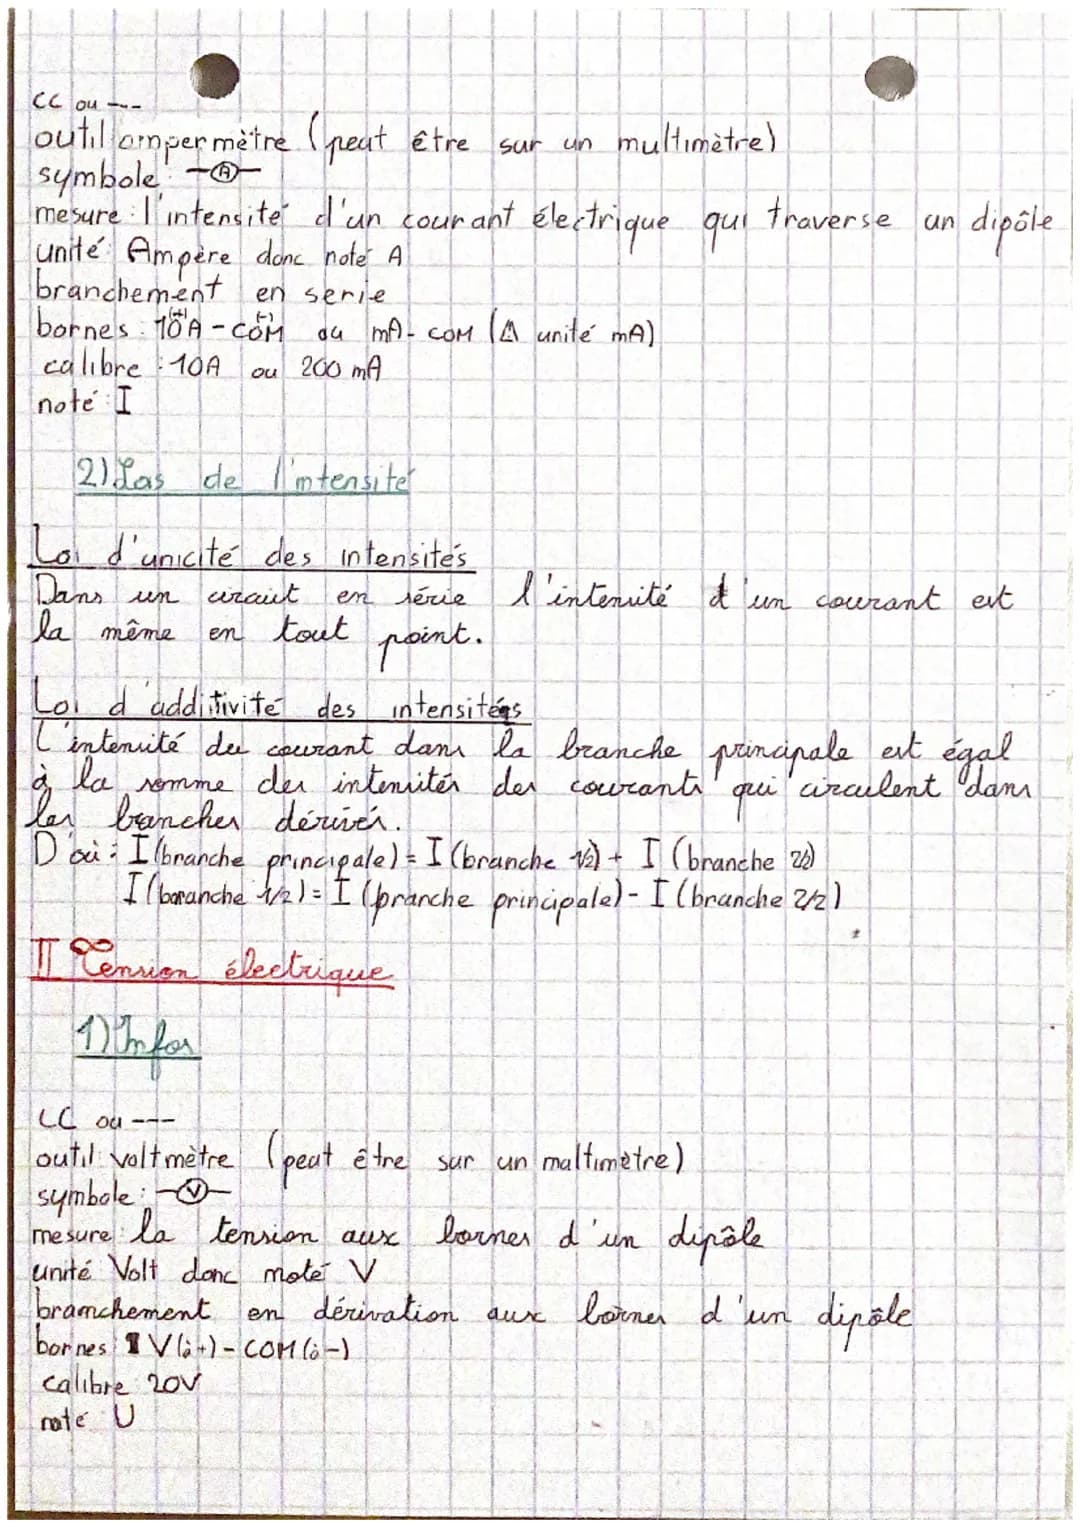 CC ou ---
outil ampermètre (peut être sur un multimètre)
symbole: -(A)-
mesure: l'intensité d'un courant électrique qui traverse un dipôle
unité: Ampère donc noté A
branchement en serie
bornes: 10A(+) - COM(-) ou mA- COM (⚠ unité mA)
calibre: 10A ou 200 mA
noté: I
2) Lois de l'intensité
Loi d'unicité des intensités
Dans un circuit en série l'intensité d'un courant est
la même en tout point.
Loi d'additivité des intensités
L'intensité du courant dans la branche principale est égal
à la somme des intensités des courants qui circulent dans
les branches dérivés.
D'où: I (branche principale) = I (branche 1/2) + I (branche 2/2)
I (branche 1/2) = I (branche principale) - I (branche 2/2)
II Tension électrique
1) Infos
CC ou ---
outil: voltmètre (peut être sur un multimètre)
symbole: -(V)-
mesure: la tension aux bornes d'un dipôle
unité Volt donc noté V
branchement en dérivation aux bornes d'un dipôle
bornes V (à +) - COM (à -)
calibre 20V
noté U